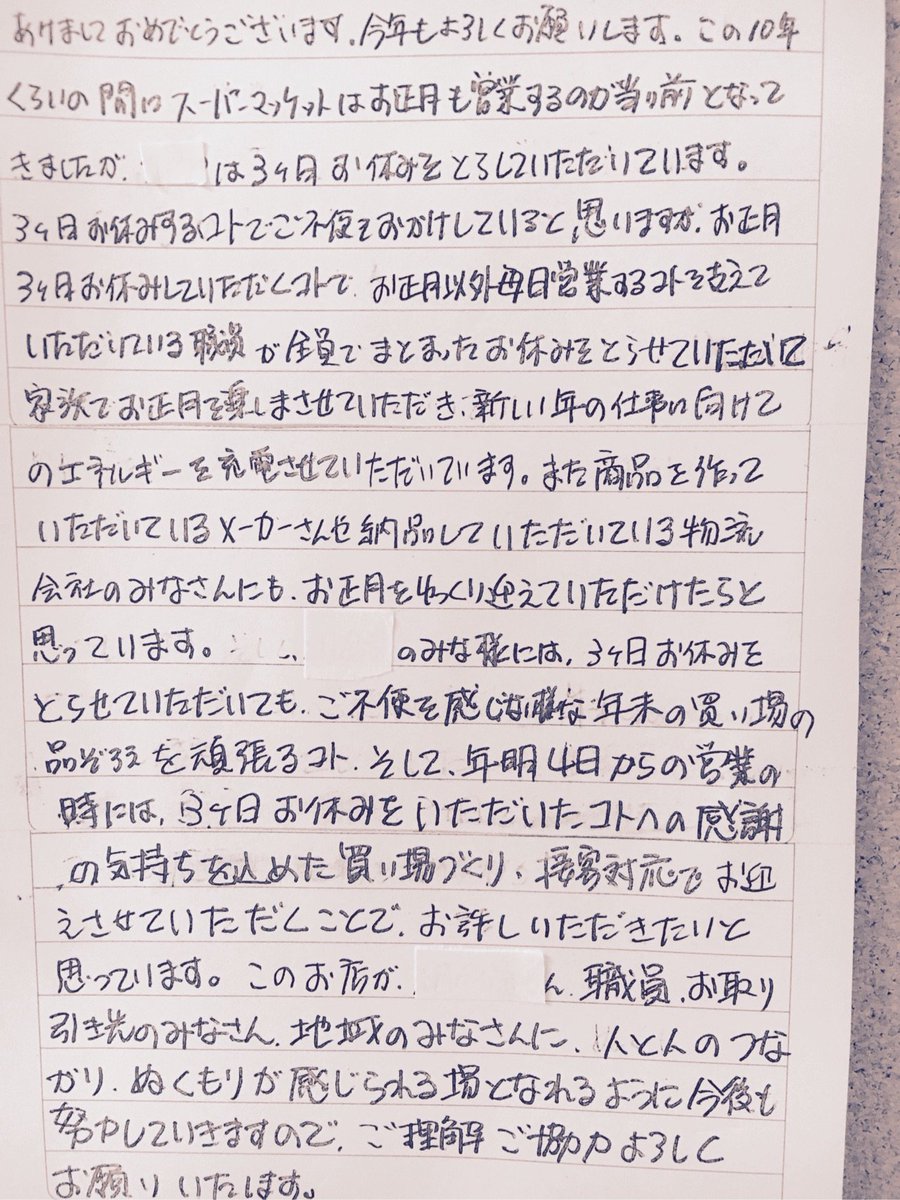 あけましておめでとうございます。今年もよろしくお願いします。この10年
くらいの間にスーパーマッケットはお正月も営業するのが当り前となって
きましたが、は3ヶ日お休みをとらしていただいています。
3ヶ日お休みするコトでご不便をおかけしていると思いますが、お正月
3ヶ日お休みしていただくコトで、お正月以外毎日営業するコトを支えて
いただいている職員が全員でまとまったお休みをとらせていただいて
家族でお正月を楽しまさせていただき、新しい年の仕事に向けて
のエネルギーを充電させていただいています。また商品を作って
いただいているメーカーさんや納品していただいている物流
会社のみなさんにも、お正月をゆっくり迎えていただけたらと
思っています。のみな様には、3ヶ日お休みを
とらせていただいても、ご不便を感じない様な年末の買い場の
品ぞろえを頑張るコト、そして、年明4日からの営業の
時には、3ヶ日お休みをいただいたコトへの感謝
の気持ちを込めた買い場づくり、接客対応でお迎
えさせていただくことで、お許しいただきたいと
思っています。このお店が、ん、職員、お取り
引き先のみなさん、地域のみなさんに、人と人のつな
がり、ぬくもりが感じられる場となれるように今後も
努力していきますので、ご理解ご協力よろしく
お願いいたします。